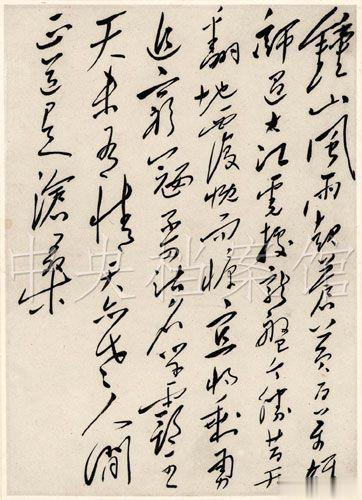 鍾山風雨起蒼黃百万雄
師過大江虎據龍盤今勝昔天
翻地覆慨而慷宜將剩勇
追窮寇不可沽名學霸王
天若有情天亦老人間
正道是滄桑
中央档案馆